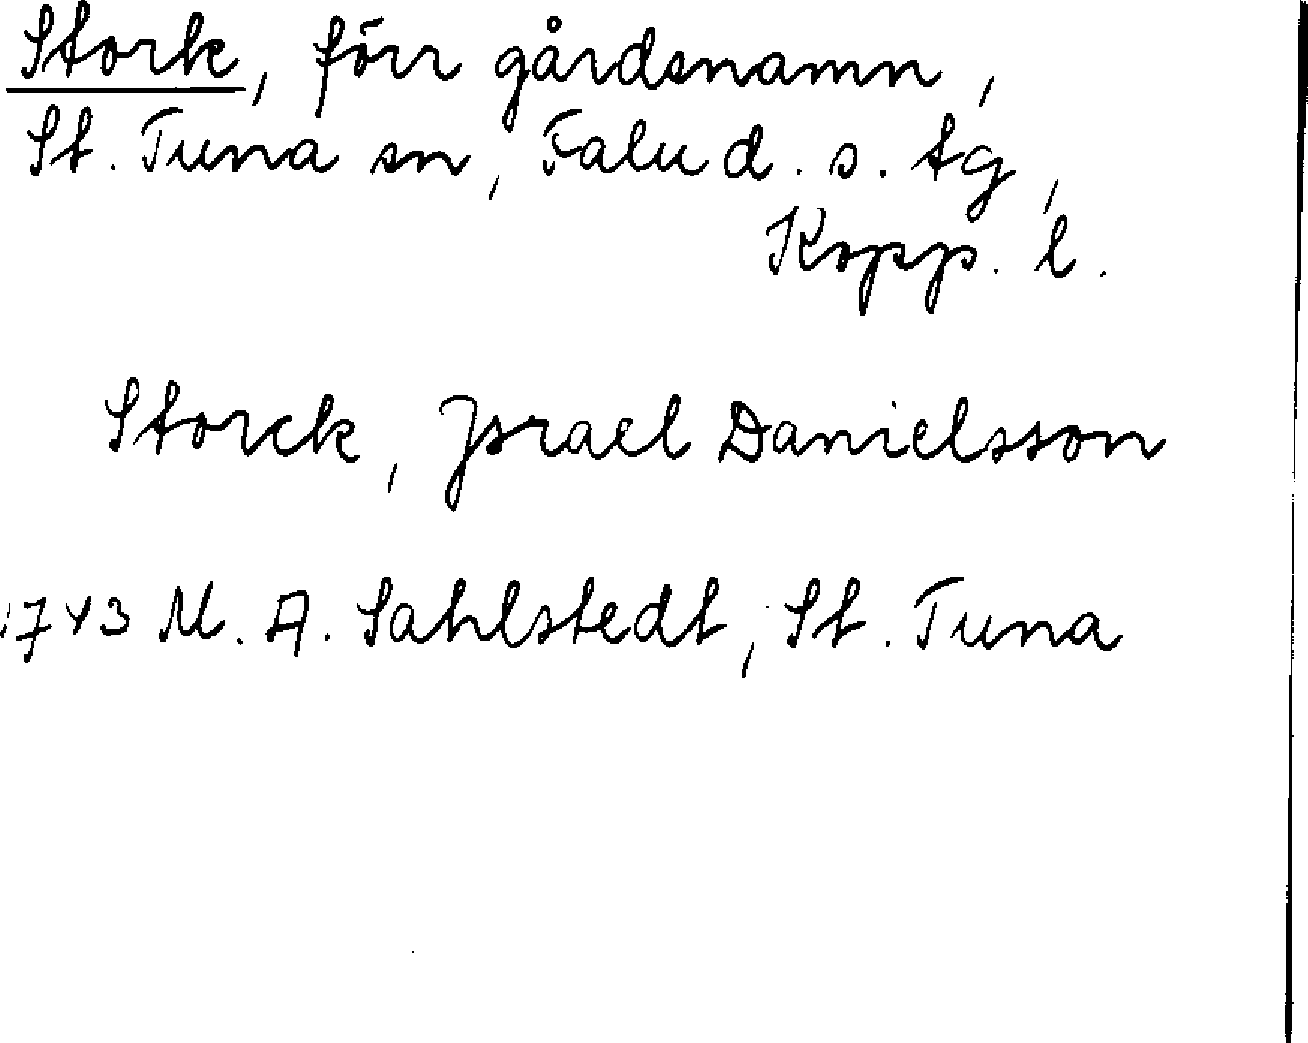 Stork, förr gårdsnamn,
St. Tuna sn, Falu d. s. tg,
Kopp. l.
Storck, Jsrael Danielsson
1743 M. A. Sahlstedt, St. Tuna